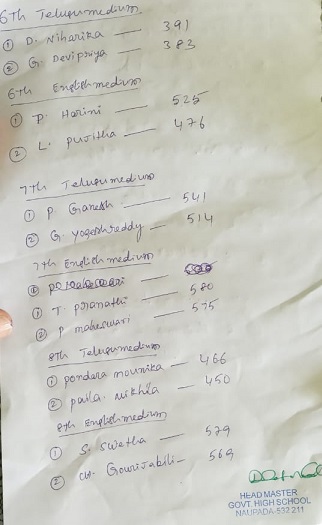 6th Telugu medium
① D. Niharika — 391
② G. Devipriya — 383
6th English medium
① P. Harini — 525
② L. pujitha — 476
7th Telugu medium
① P. Ganesh — 541
② G. yogeshreddy — 514
7th English medium
① T. pranathi — 580
② P maheswari — 575
8th Telugu medium
① pondara mounika — 466
② paila. nikhila — 450
8th English medium
① S. Swetha — 579
② ch. Gowrisabili — 569
HEAD MASTER
GOVT. HIGH SCHOOL
NAUPADA-532 211